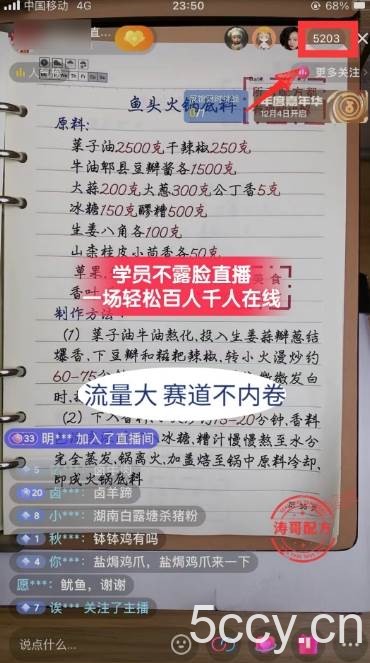 中国移动 4G
23:50
直...
5203
人气榜
更多关注
年度嘉年华
12月4日开启
鱼头火锅底料
原料:
菜子油2500克干辣椒250克
牛油郫县豆瓣酱各1500克
大蒜200克大葱300克公丁香5克
冰糖150克醪糟500克
生姜八角各100克
山柰桂皮小茴香各50克
草果,
香叶
美食
学员不露脸直播
一场轻松百人千人在线
制作方法:
(1) 菜子油牛油熬化,投入生姜蒜瓣葱结
爆香,下豆瓣和糍粑辣椒,转小火漫炒约
60-75分
微微发白
时,
流量大 赛道不内卷
(2) 下入香料
15-20分钟,香料
33 明*** 加入了直播间
冰糖,糟汁慢慢熬至水分
完全蒸发,锅离火,加盖焐至锅中原料冷却,
即成火锅底料
20 卤*** : 卤羊蹄
8 小*** : 湖南白露塘杀猪粉
1 秋*** : 钵钵鸡有吗
4 你*** : 盐焗鸡爪,盐焗鸡爪来一下
愿*** : 鱿鱼,谢谢
7 诶*** 关注了主播
涛哥配方
说点什么...
5ccy.cn